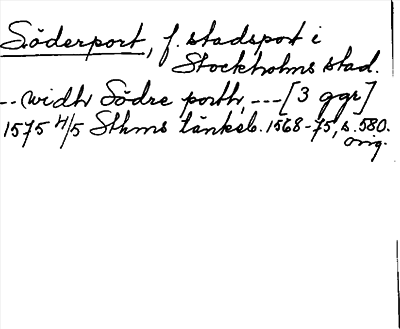 Söderport, f. stadsport i
Stockholms stad.
-- widh Södre porth, --- [3 ggr]
1575 4/5 Sthms tänkeb. 1568-75, s. 580.
orig.